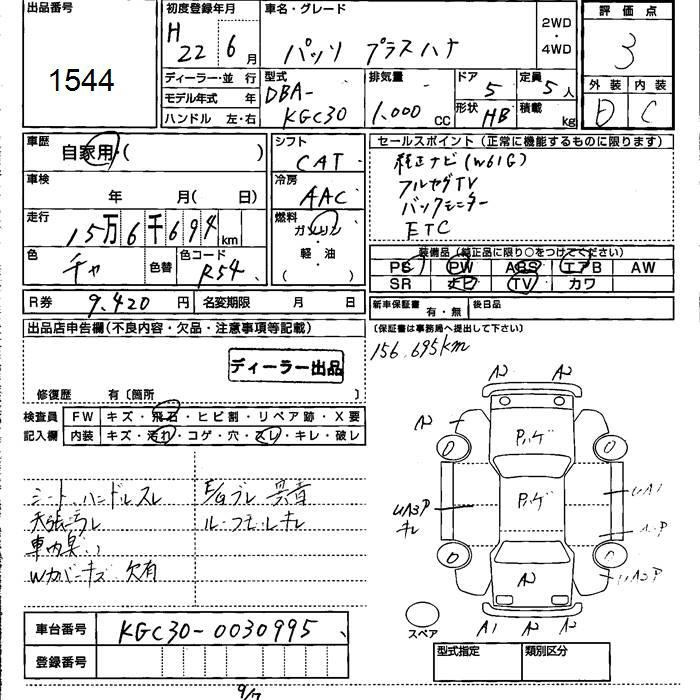 出品番号
1544
初度登録年月
H
22 6月
車名・グレード
パッソ プラスハナ
2WD
・
4WD
評価点
3
外装 内装
D C
ディーラー・並 行
モデル年式 年
ハンドル 左・右
型式
DBA-
KGC30
排気量
1,000 cc
ドア
5
形状
HB
定員
5人
積載
kg
車歴
自家用・( )
車検
年 月( 日)
走行
15万6千694km
色
チャ
色替
色コード
R54
シフト
CAT
冷房
AAC
燃料
ガソリン
・
軽・油
( )
セールスポイント(正常に機能するものに限ります)
純正ナビ(W61G)
フルセグTV
バックモニター
ETC
装備品(純正品に限り○をつけてください)
PS PW ABS エアB AW
SR ナビ TV カワ
R券 9,420 円 名変期限 月 日
新車保証書 有・無 後日品
(保証書は事務局へ提出して下さい)
156,695km
出品店申告欄(不良内容・欠品・注意事項等記載)
ディーラー出品
修復歴 有〔箇所 〕
検査員 FW キズ・飛石・ヒビ割・リペア跡・X要
記入欄 内装 キズ・汚れ・コゲ・穴・スレ・キレ・破レ
シート、ハンドルスレ
天張汚レ
車内臭い
Wカバーキズ 欠有
E/Gブレ 異音
ル・フモールキレ
A2 A2
A2
Pハゲ
Pハゲ
UA3P
キレ
UA1
A2P
UA2P
A2
A1 A2 A2
スペア
車台番号 KGC30-0030995
登録番号
型式指定 類別区分
9/7